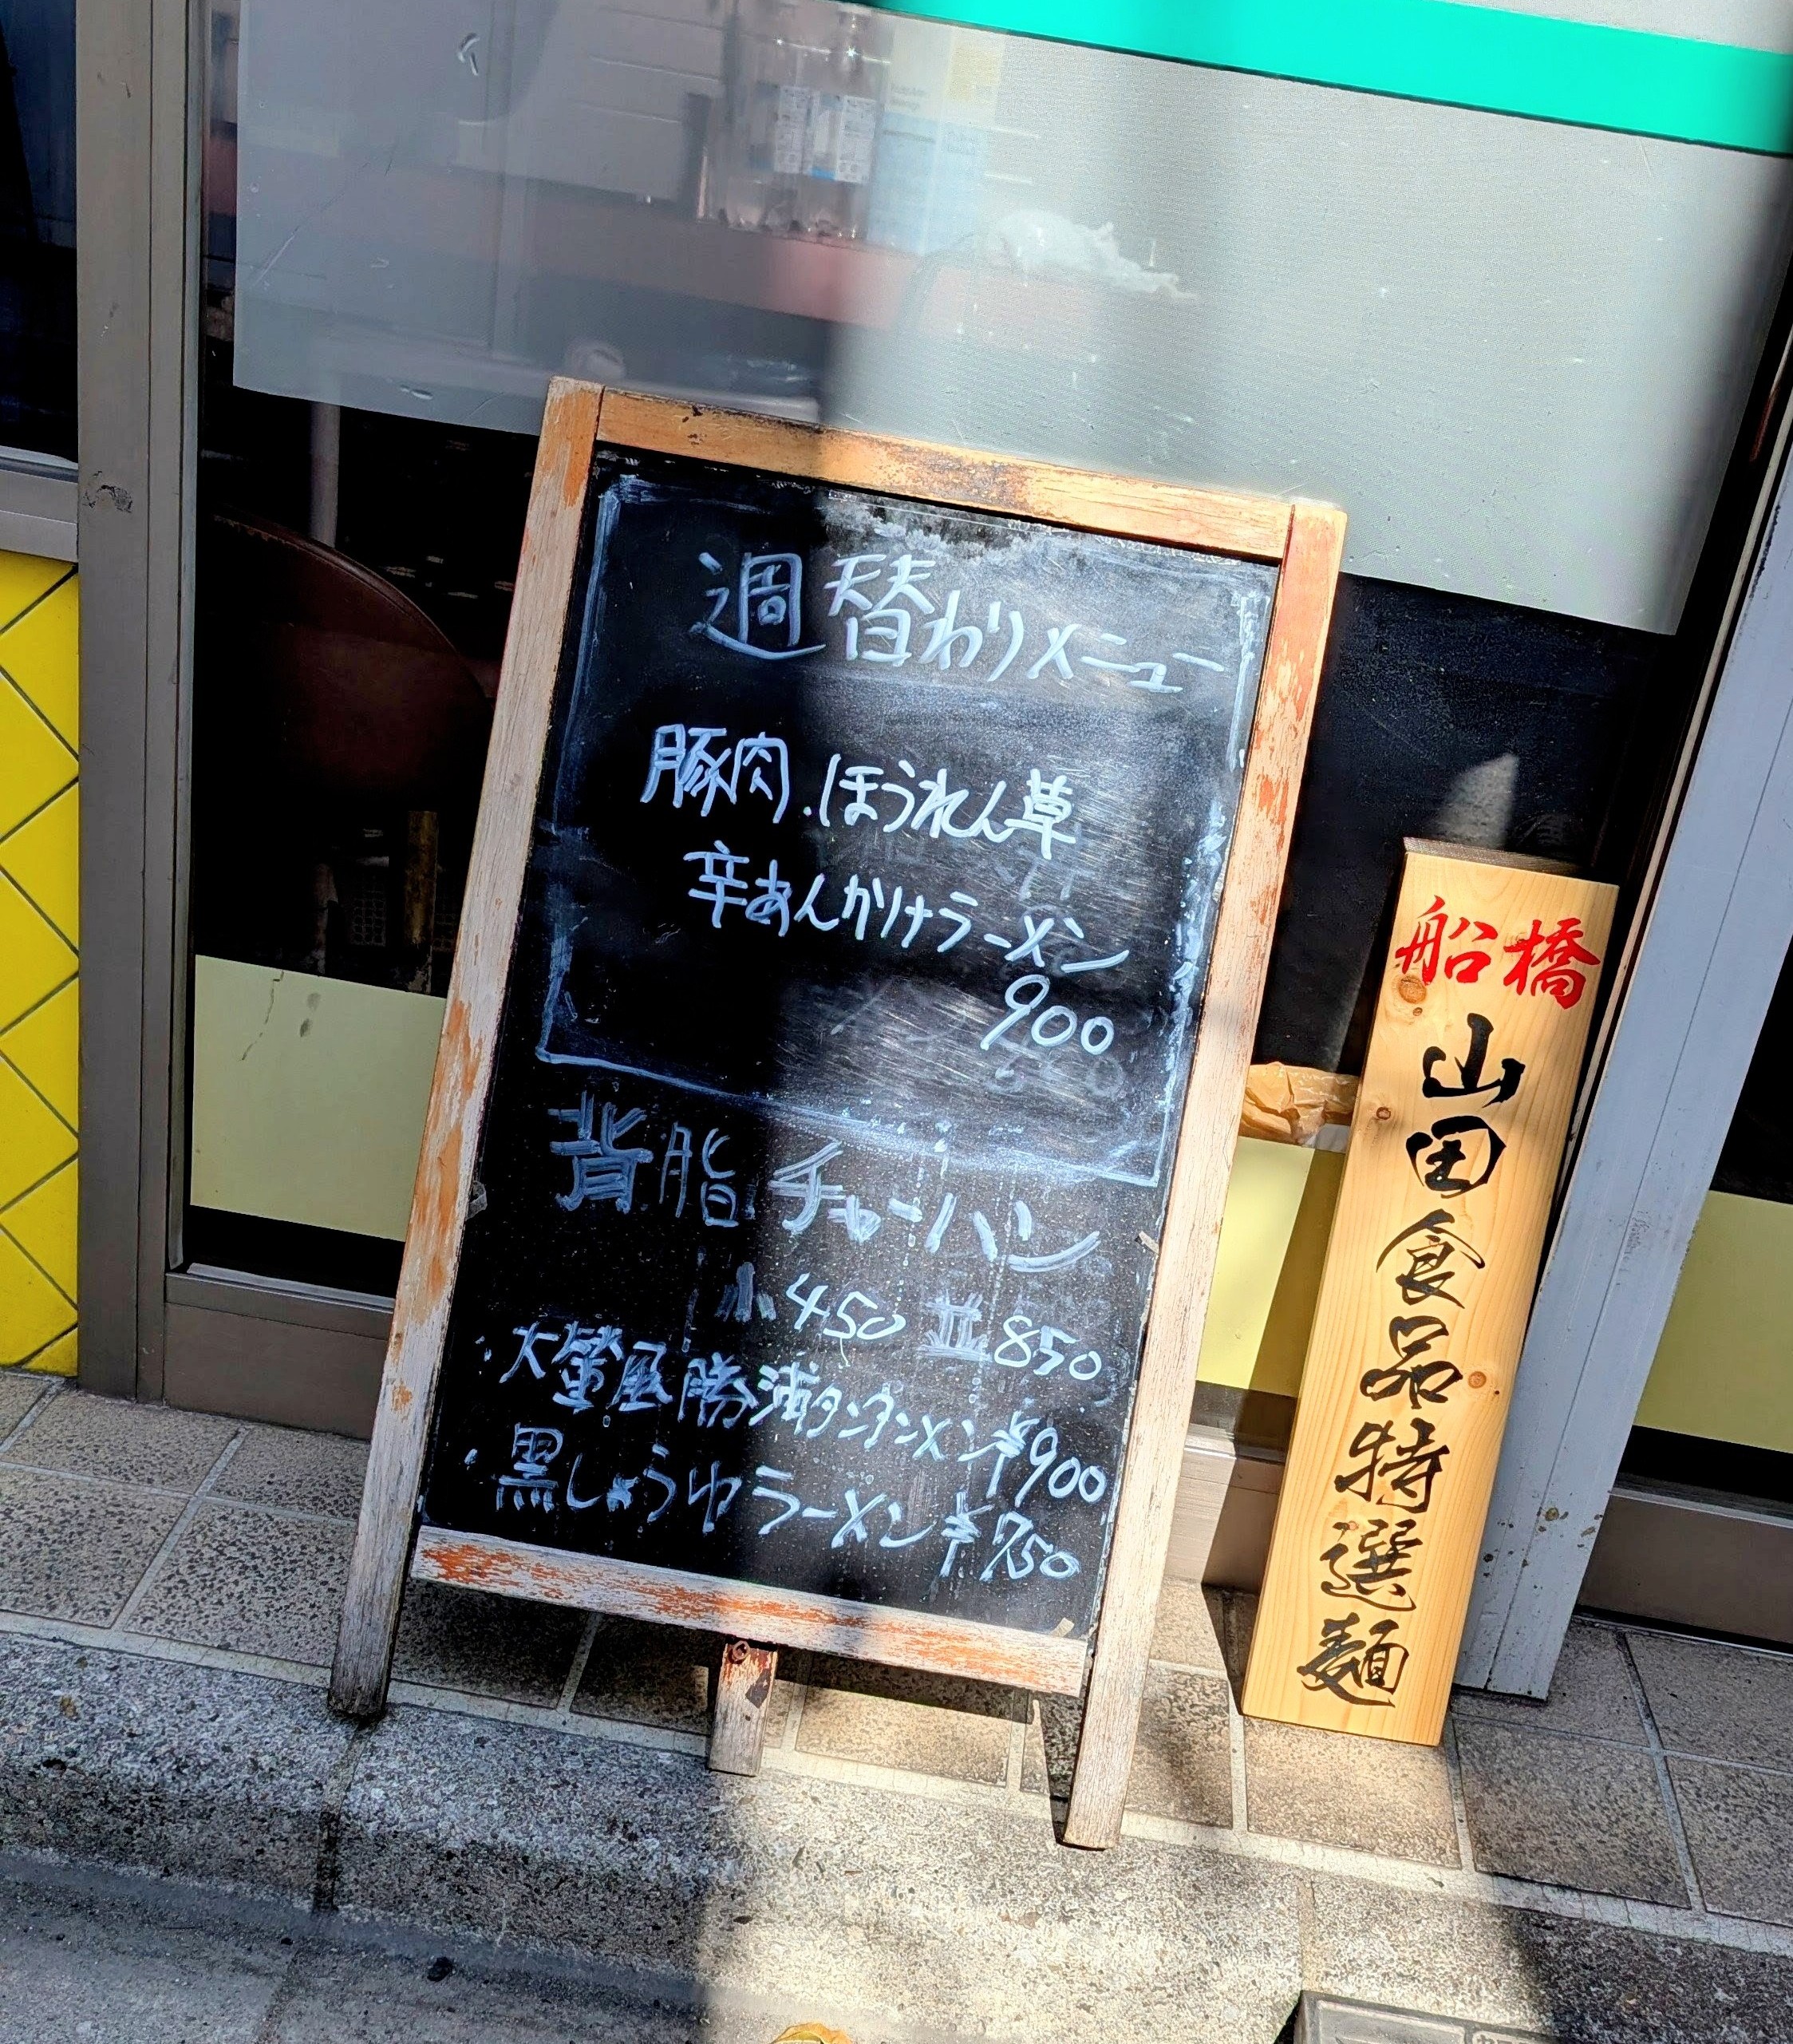 週替わりメニュー
豚肉・ほうれん草
辛あんかけラーメン
900
背脂チャーハン
小450 並850
・大螢風勝浦タンタンメン¥900
・黒しょうゆラーメン¥750
船橋
山田食品特選麺